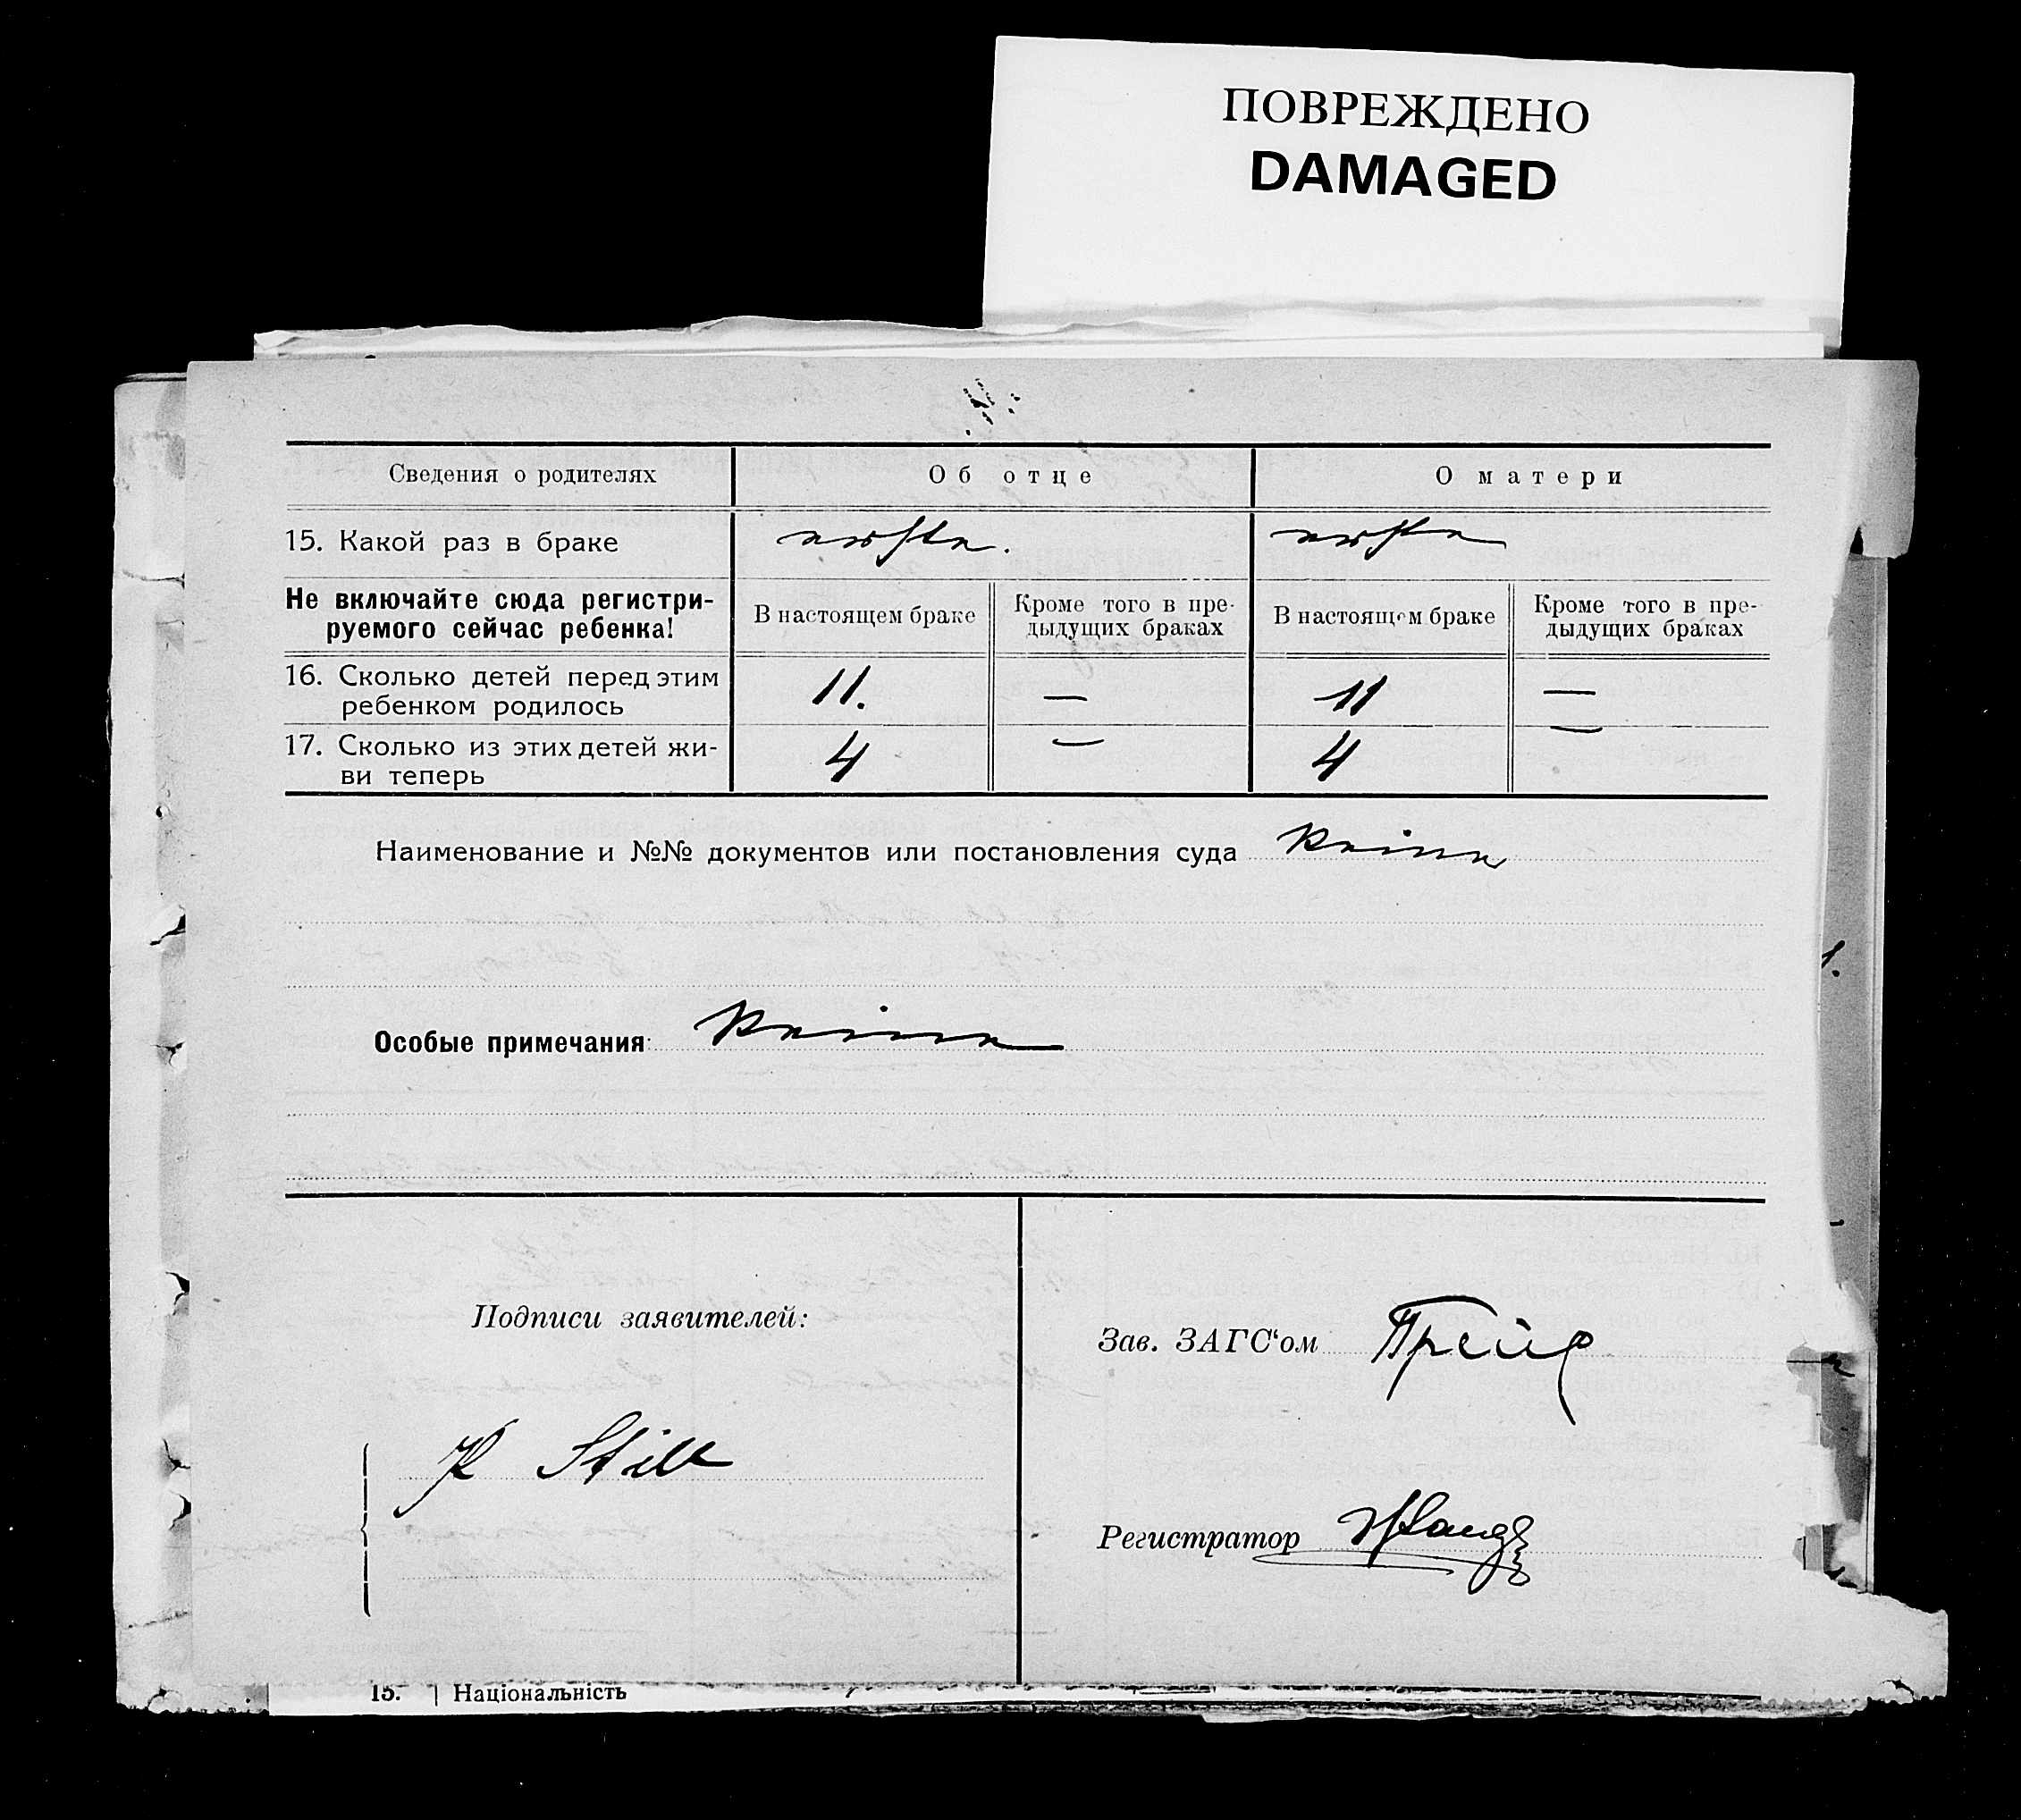 ПОВРЕЖДЕНО
DAMAGED
Сведения о родителях
Об отце
О матери
15. Какой раз в браке
erste.
erste
Не включайте сюда регистри-
руемого сейчас ребенка!
В настоящем браке
Кроме того в пре-
дыдущих браках
В настоящем браке
Кроме того в пре-
дыдущих браках
16. Сколько детей перед этим
ребенком родилось
11.
—
11
—
17. Сколько из этих детей жи-
ви теперь
4
—
4
—
Наименование и №№ документов или постановления суда Keine
Особые примечания: Keine
Подписи заявителей:
K Still
Зав. ЗАГС‘ом
Регистратор
15. | Національність